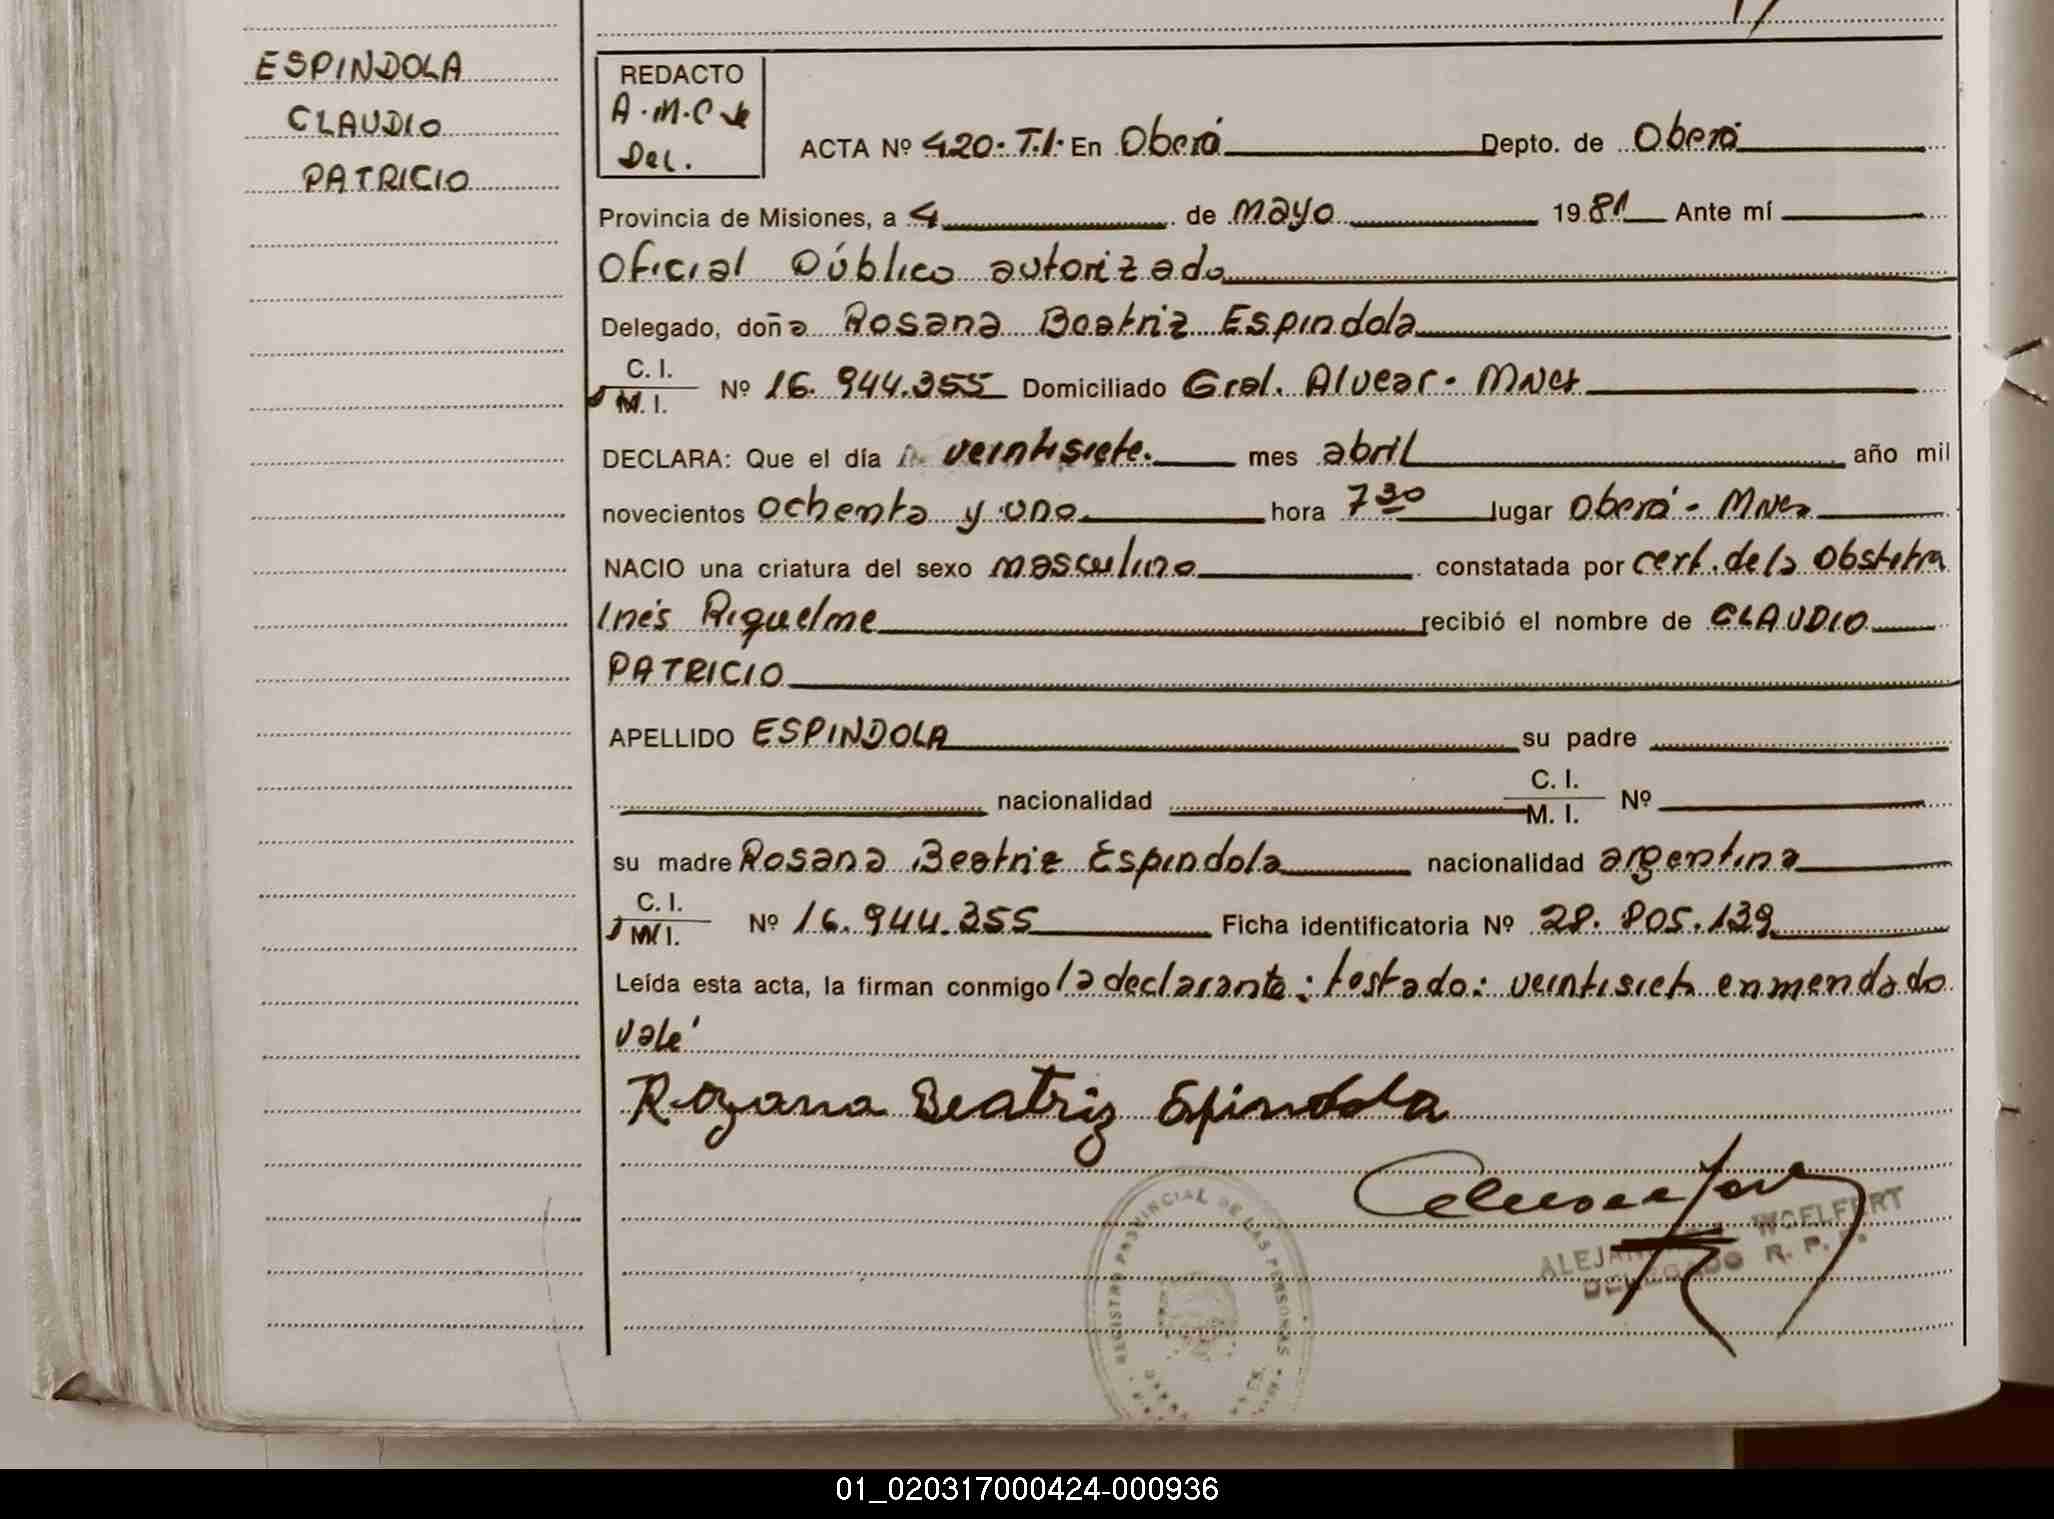 ESPINDOLA
CLAUDIO
PATRICIO
REDACTO
A.M.C de
Del.
ACTA Nº 420. T.I. En Oberá Depto. de Oberá
Provincia de Misiones, a 4 de mayo 1981 Ante mí
Oficial Público autorizado
Delegado, doña Rosana Beatriz Espindola
C. I.
M. I. Nº 16. 944.355 Domiciliado Gral. Alvear - Mnes
DECLARA: Que el día veintisiete. mes abril año mil
novecientos ochenta y uno hora 7 30 lugar Oberá - Mnes
NACIO una criatura del sexo masculino constatada por cert. de la Obstetra
Inés Riquelme recibió el nombre de CLAUDIO
PATRICIO
APELLIDO ESPINDOLA su padre
nacionalidad C. I.
M. I. Nº
su madre Rosana Beatriz Espindola nacionalidad argentina
C. I.
M. I. Nº 16. 944. 355 Ficha identificatoria Nº 28. 805. 139
Leída esta acta, la firman conmigo la declarante: testado: veintisiete enmendado
vale
Rozana Beatriz Espindola
REGISTRO PROVINCIAL DE LAS PERSONAS
WOELFERT
DELEGADO R. P. P.
01_020317000424-000936